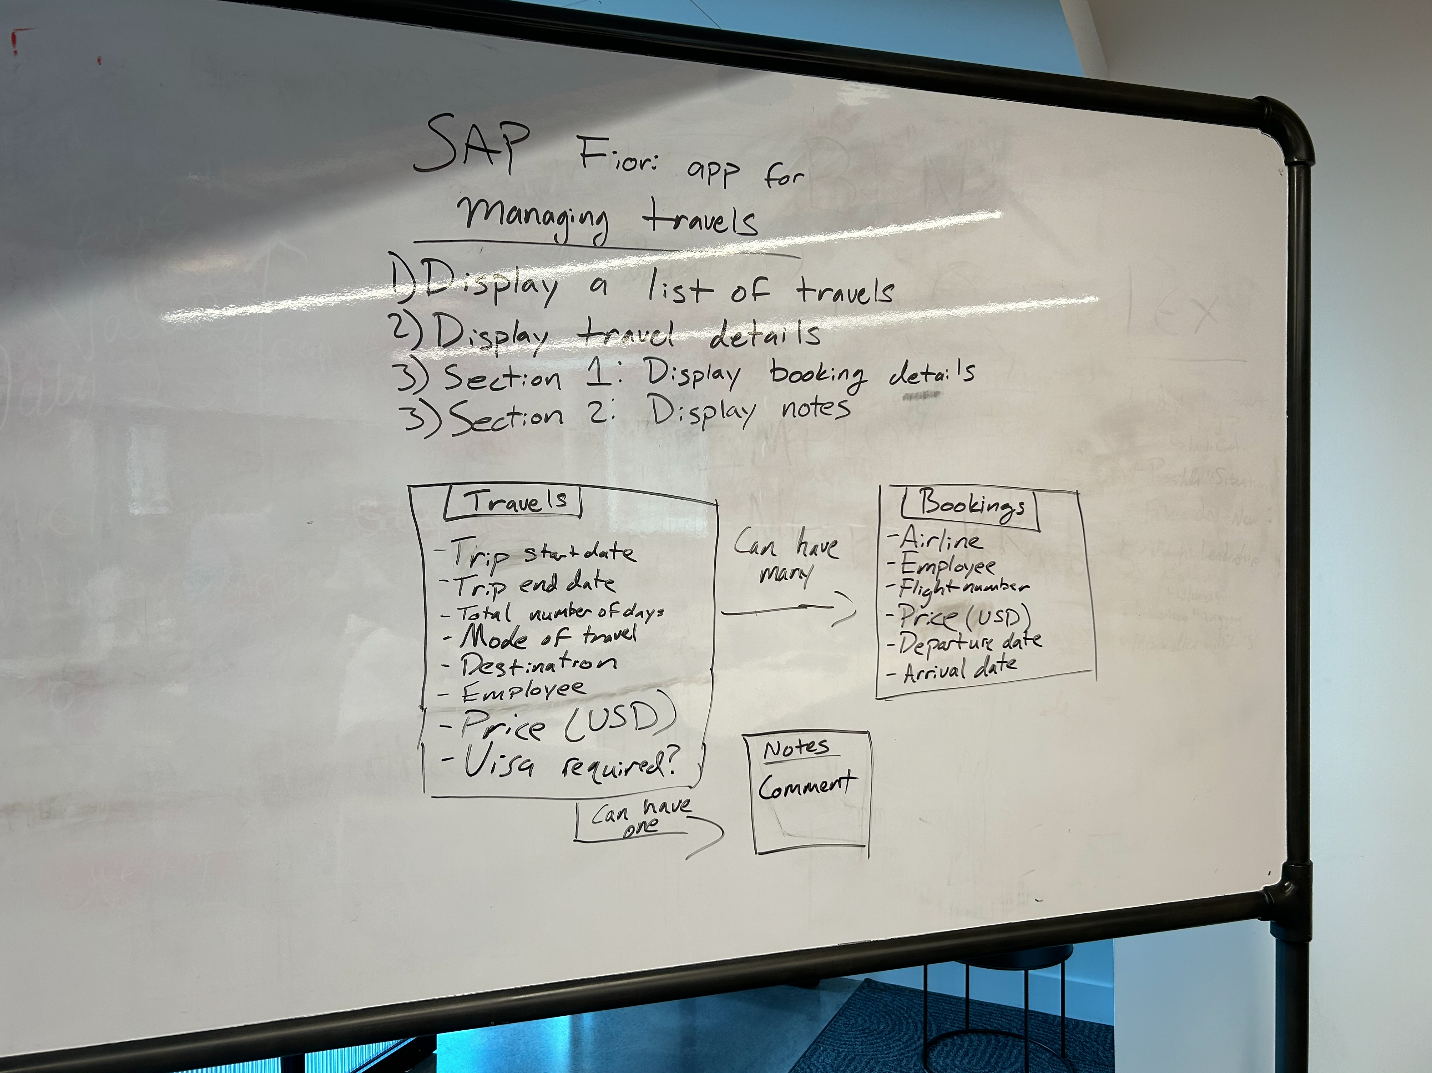 SAP Fiori app for
Managing travels
1) Display a list of travels
2) Display travel details
3) Section 1: Display booking details
3) Section 2: Display notes
Travels
- Trip start date
- Trip end date
- Total number of days
- Mode of travel
- Destination
- Employee
- Price (USD)
- Visa required?
Can have
many
Bookings
- Airline
- Employee
- Flight number
- Price (USD)
- Departure date
- Arrival date
Can have
one
Notes
Comment